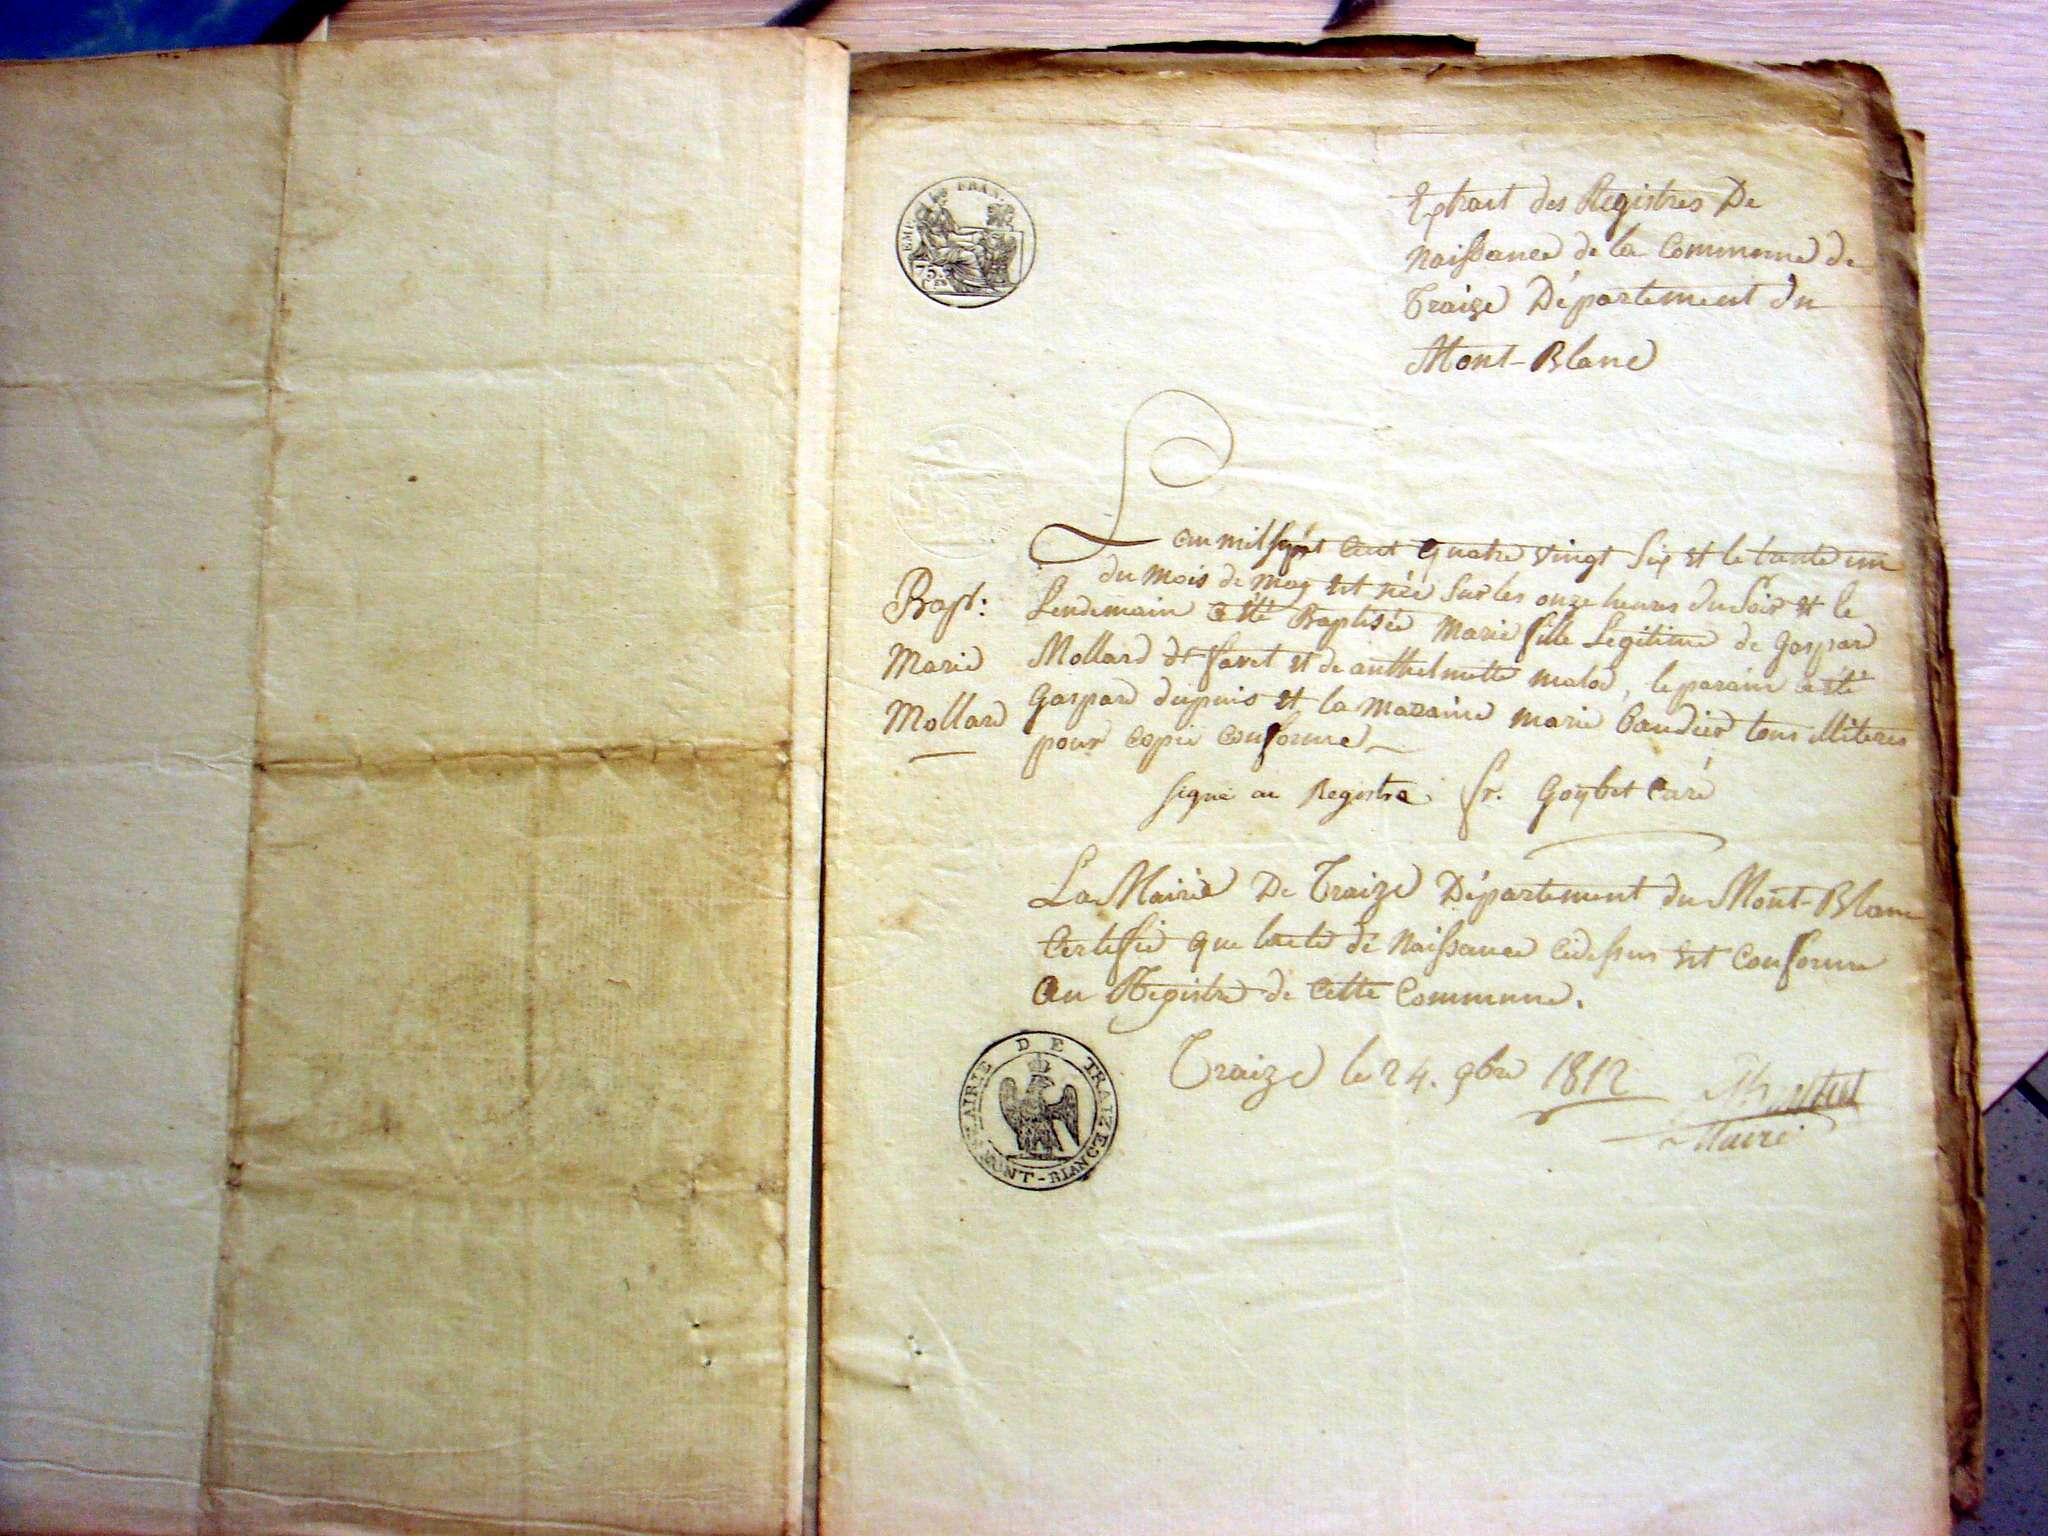 EMP FRAN
75 CEN
Extrait des Registres De
naissance de la Commune de
Traize Département du
Mont-Blanc
L'an mil sept Cent quatre vingt six et le tante un
du mois de may est née sur les onze heures du soir et le
Bapt:
Lendemain a été Baptisée Marie fille Legitime de gaspard
Marie
Mollard dt favet et de anthelmette malod, le parain a été
Mollard
gaspard dupuis et la maraine marie Caudier tous illiterés
pour copie conforme
signé au Registre fr. Goybet Curé
La Mairie De Traize Département du Mont-Blanc
Certifie que lacte de naissance cidessus est conforme
au Registre de cette commune.
Traize le 24. 9bre 1812
Maire
MAIRIE DE TRAIZE
MONT-BLANC